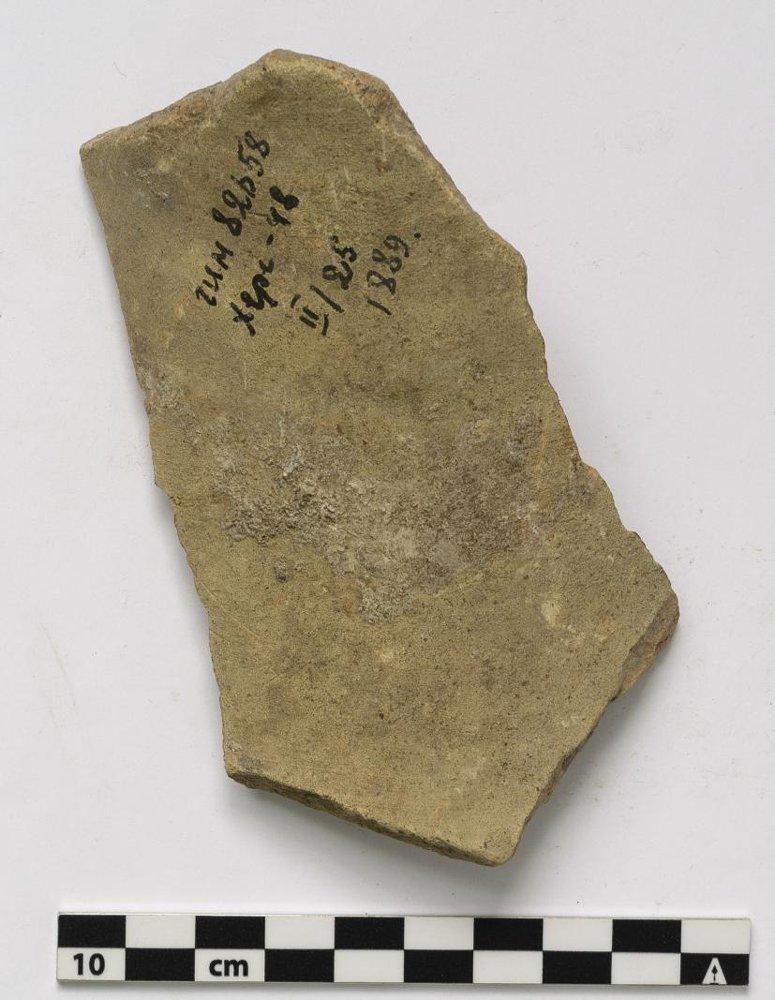 гим 82658
херс-48
II/25
1889.
10 cm